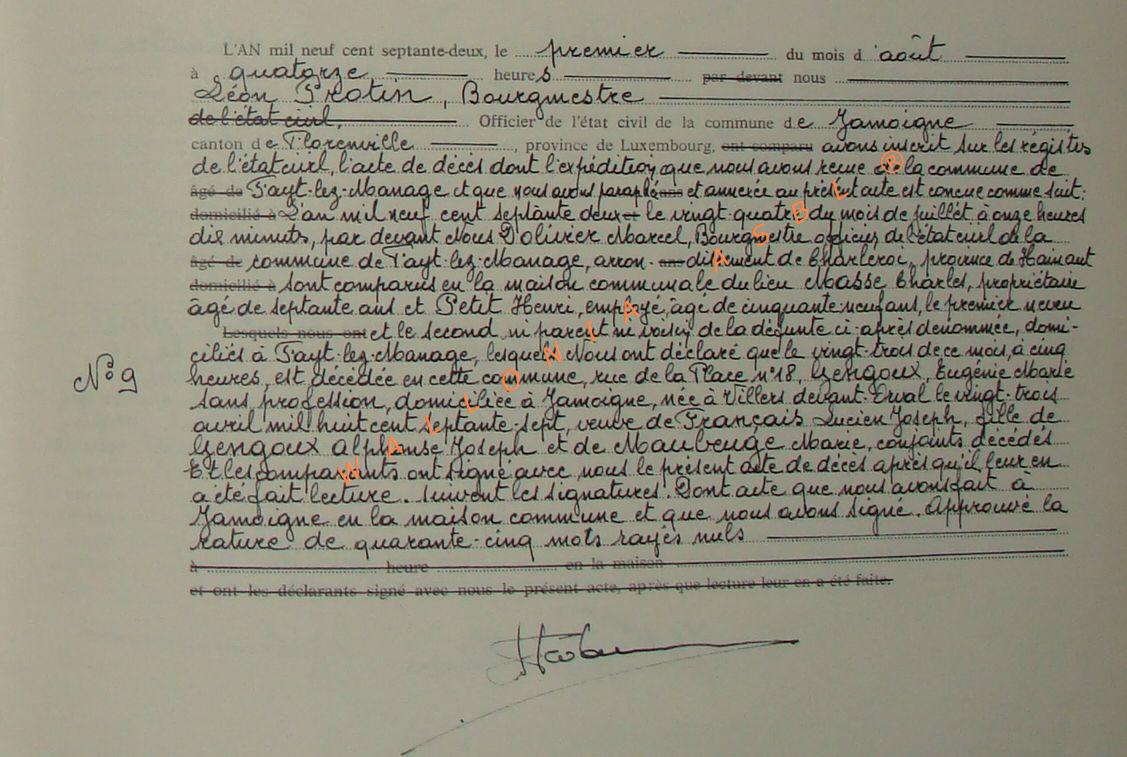 L'AN mil neuf cent septante-deux, le premier du mois d'août
à quatorze heures par devant nous
Léon Protin, Bourgmestre
de l'état civil, Officier de l'état civil de la commune de Jamoigne
canton de Florenville, province de Luxembourg, ont comparu avons inscrit sur les régistres
de l'état civil, l'acte de décès dont l'expédition que nous avons reçue de la commune de
âgé de Fayt-lez-Manage et que nous avons paraphé ans et annexée au présent acte est conçue comme suit:
domicilié à L'an mil neuf cent septante deux et le vingt-quatre du mois de juillet à onze heures
dix minutes, par devant Nous Dolivier Marcel, Bourgmestre officier de l'état civil de la
âgé de commune de Fayt-lez-Manage, arron- ans dissement de Charleroi, province de Hainaut
domicilié à sont comparus en la maison communale du lieu Masse Charles, propriétaire
âgé de septante ans et Petit Henri, employé, âgé de cinquante neuf ans, le premier neveu
Lesquels nous ont et le second ni parent ni voisin de la défunte ci-après dénommée, domi-
ciliés à Fayt-lez-Manage, lesquels Nous ont déclaré que le vingt-trois de ce mois, à cinq
N° 9
heures, est décédée en cette commune, rue de la Place n° 18, Gengoux, Eugénie Marie
sans profession, domiciliée à Jamoigne, née à Villers devant-Orval le vingt-trois
avril mil huit cent septante-sept, veuve de Français Lucien Joseph, fille de
Gengoux Alphonse Joseph et de Maubeuge Marie, conjoints décédés
Et les comparants ont signé avec nous le présent acte de décès après qu'il leur en
a été fait lecture. Suivent les signatures. Dont acte que nous avons fait à
Jamoigne en la maison commune et que nous avons signé. Approuvé la
rature de quarante-cinq mots rayés nuls
à heure en la maison
et ont les déclarants signé avec nous le présent acte, après que lecture leur en a été faite.
WALLONIA ASBL ®